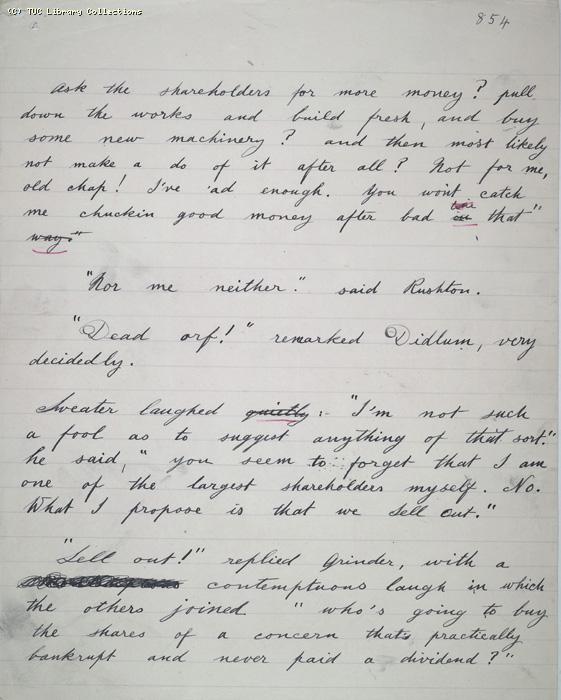 (C) TUC Library Collections
854
Ask the shareholders for more money? pull
down the works and build fresh, and buy
some new machinery? and then most likely
not make a do of it after all? Not for me,
old chap! I've 'ad enough. You wont catch
me chuckin good money after bad in that"
way."
"Nor me neither." said Rushton.
"Dead orf!" remarked Didlum, very
decidedly.
Sweater laughed quietly:- "I'm not such
a fool as to suggest anything of that sort."
he said, "you seem to forget that I am
one of the largest shareholders myself. No.
What I propose is that we Sell Out."
"Sell out!" replied Grinder, with a
contemptuous laugh in which
the others joined "who's going to buy
the shares of a concern thats practically
bankrupt and never paid a dividend?"